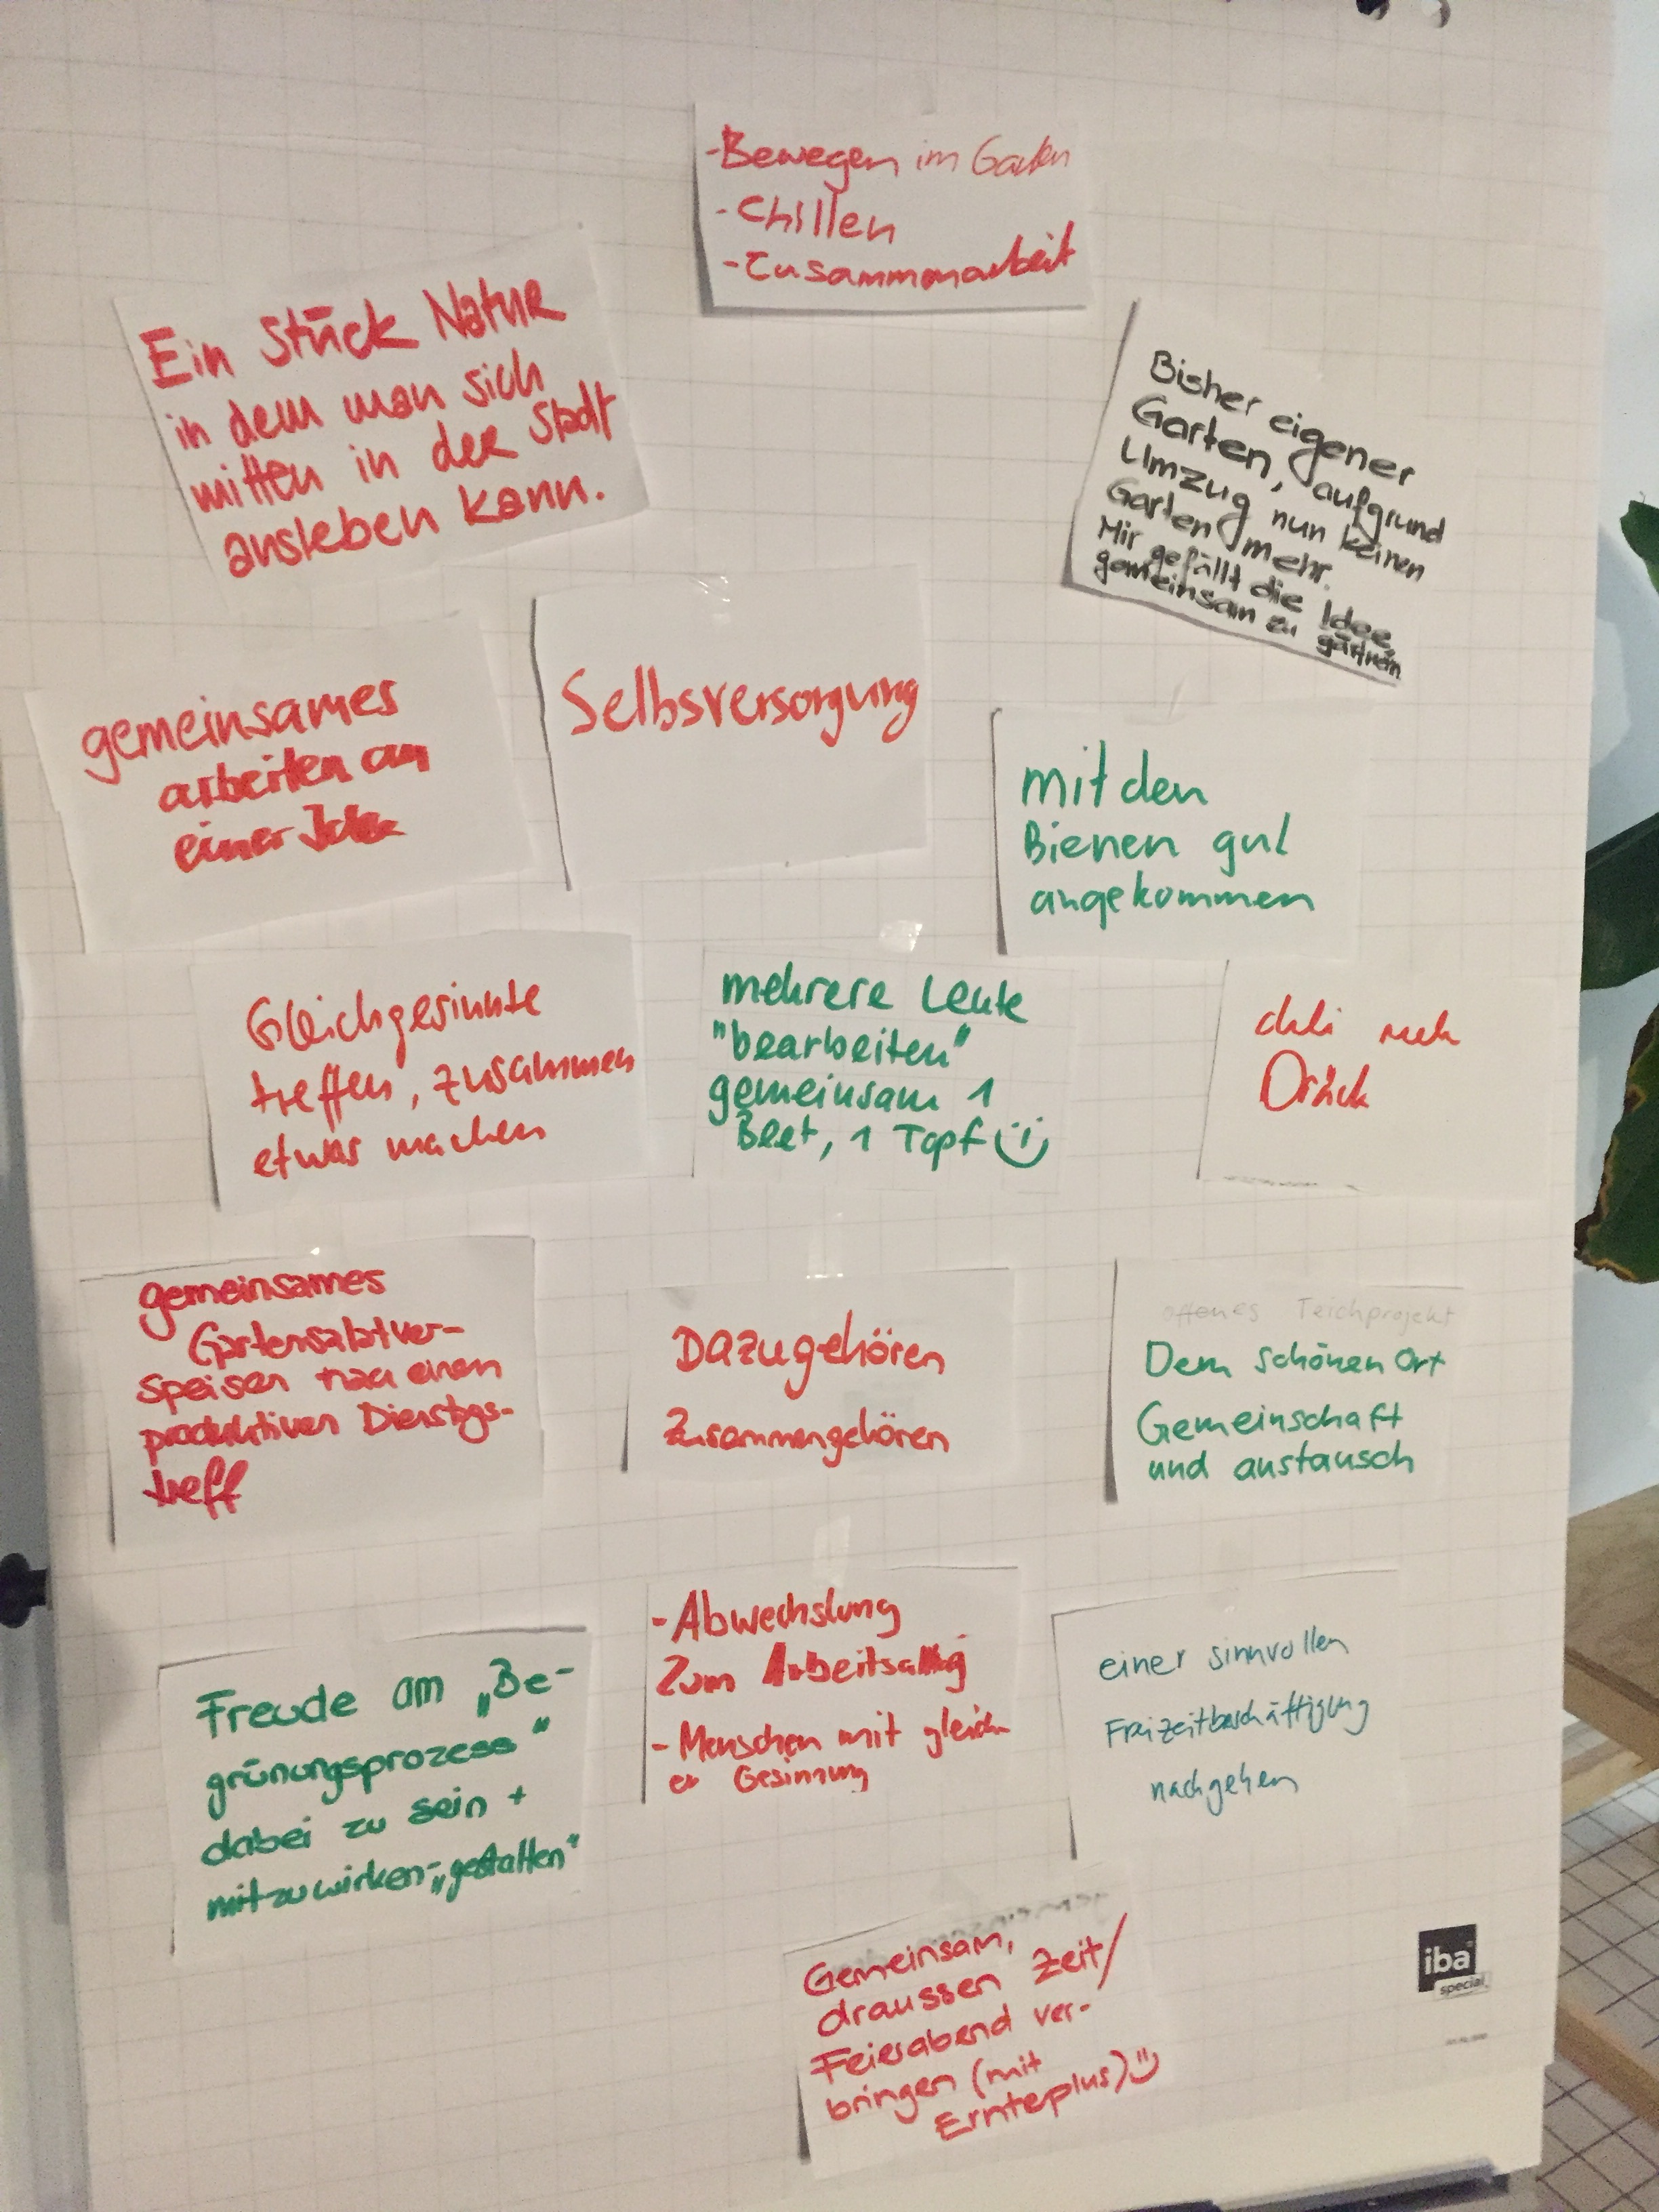 -Bewegen im Garten
-Chillen
-Zusammenarbeit
Ein Stück Natur
in dem man sich
mitten in der Stadt
ausleben kann.
Bisher eigener
Garten, aufgrund
Umzug nun keinen
Garten mehr.
Mir gefällt die Idee,
gemeinsam zu gärtnern
gemeinsames
arbeiten an
einer Idee
Selbsversorgung
mit den
Bienen gut
angekommen
Gleichgesinnte
treffen, zusammen
etwas machen
mehrere Leute
"bearbeiten"
gemeinsam 1
Beet, 1 Topf
Gemeinsames
Gartensalatver-
speisen nach einem
produktiven Dienstags-
treff
Dazugehören
Zusammengehören
offenes Teichprojekt
Dem schönen Ort
Gemeinschaft
und austausch
Freude am „Be-
grünungsprozess"
dabei zu sein +
mitzuwirken-„gestalten"
-Abwechslung
Zum Arbeitsalltag
-Menschen mit gleich
er Gesinnung
einer sinnvollen
Freizeitbeschäftigung
nachgehen
Gemeinsam,
draussen Zeit/
Feierabend ver-
bringen (mit
Ernteplus)
iba
special